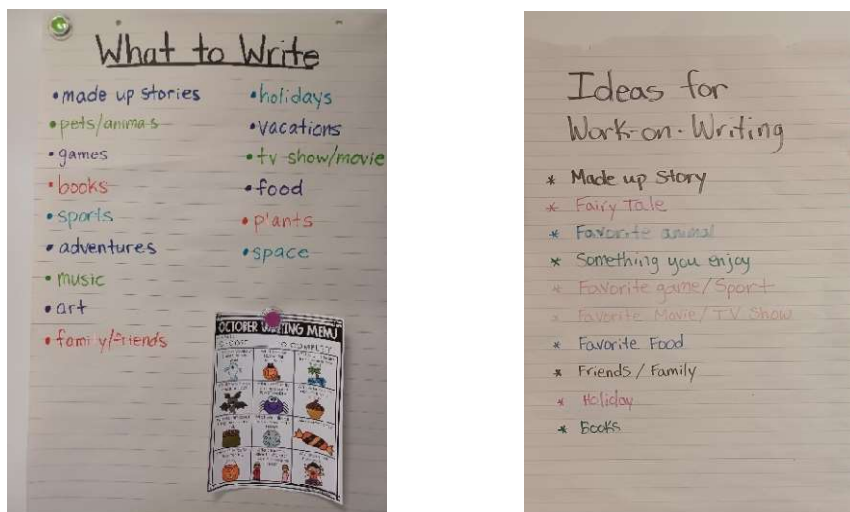 What to Write
• made up stories
• pets/animals
• games
• books
• sports
• adventures
• music
• art
• family/friends
• holidays
• vacations
• tv show/movie
• food
• plants
• space
OCTOBER WRITING MENU
Ideas for
Work-on-Writing
* Made up Story
* Fairy Tale
* Favorite animal
* Something you enjoy
* Favorite game/Sport
* Favorite Movie/TV Show
* Favorite Food
* Friends/Family
* Holiday
* Books